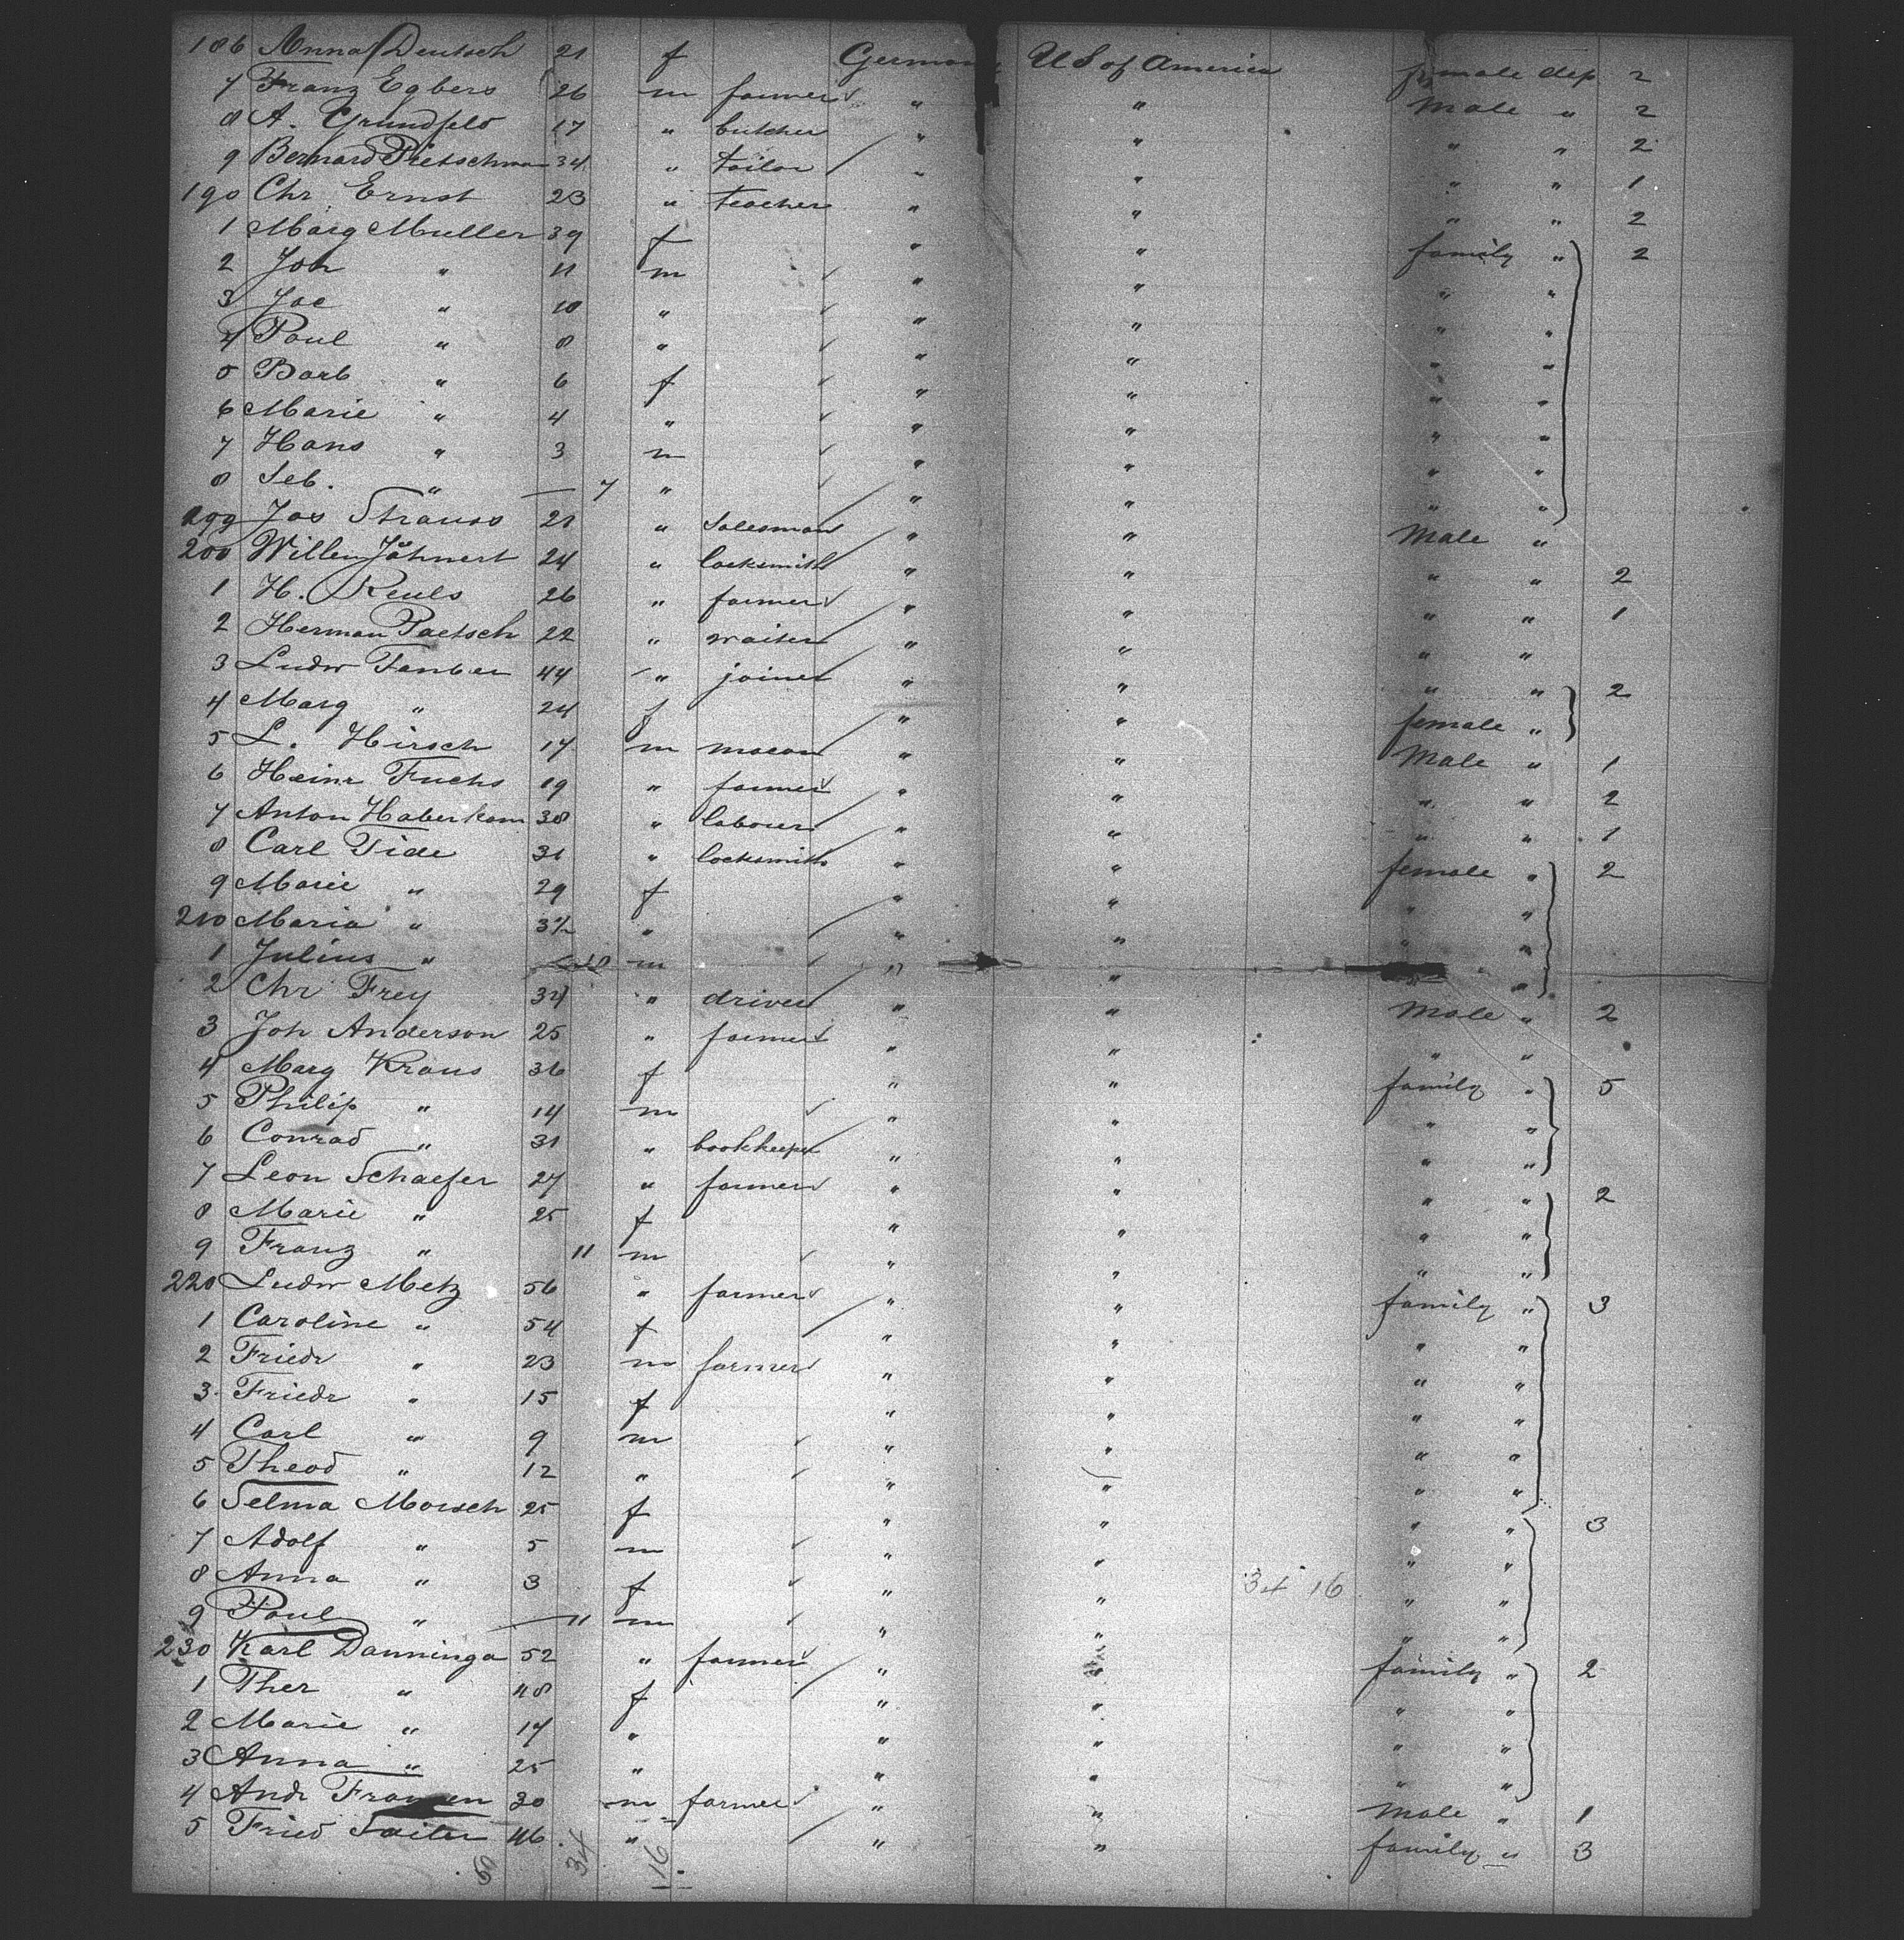 186 Anna Deutsch 21 f Germany U S of America female dep 2
7 Franz Egbers 26 m farmer " " Male " 2
8 A. Grundfeld 17 " butcher " " " " 2
9 Bernard Pietschman 34 " tailor " " " " 1
190 Chr. Ernst 23 " teacher " " " " 2
1 Marg Muller 39 f " " family " 2
2 Joh " 11 m " " " "
3 Joe " 10 " " " " "
4 Paul " 8 " " " " "
5 Barb " 6 f " " " "
6 Marie " 4 " " " " "
7 Hans " 3 m " " " "
8 Seb. " — 7 " " " " "
199 Jos Strauss 28 " Salesman " " Male "
200 Willem Jähnert 24 " locksmith " " " " 2
1 H. Reuls 26 " farmer " " " " 1
2 Herman Paetsch 22 " waiter " " " "
3 Ludw Tauber 44 " joiner " " " " 2
4 Marg " 24 f " " female "
5 L. Hirsch 17 m mason " " Male " 1
6 Heinr Fuchs 19 " farmer " " " " 2
7 Anton Haberkam 38 " laborer " " " " 1
8 Carl Tide 31 " locksmith " " female " 2
9 Marie " 29 f " " " "
210 Maria " 3½ " " " " "
1 Julius " m " " " "
2 Chr Frey 34 " driver " " Male " 2
3 Joh Anderson 25 " farmer " " " "
4 Marg Kraus 36 f " " family " 5
5 Philip " 14 m " " " "
6 Conrad " 31 " bookkeeper " " " "
7 Leon Schaefer 27 " farmer " " " " 2
8 Marie " 25 f " " " "
9 Franz " 11 m " " " "
220 Ludw Metz 56 " farmer " " family " 3
1 Caroline " 54 f " " " "
2 Friedr " 23 m farmer " " " "
3 Friedr " 15 f " " " "
4 Carl " 9 m " " " "
5 Theod " 12 " " " " "
6 Selma Morsch 25 f " " " " 3
7 Adolf " 5 m " " " "
8 Anna " 3 f " " 34 16 " "
9 Paul " — 11 m " " " "
230 Karl Danninga 52 " farmer " " family " 2
1 Ther " 48 f " " " "
2 Marie " 17 " " " " "
3 Anna " 25 " " " " "
4 Andr Fransen 30 m farmer " " Male " 1
5 Fried Sailer 46 " " " family " 3
50 34 16